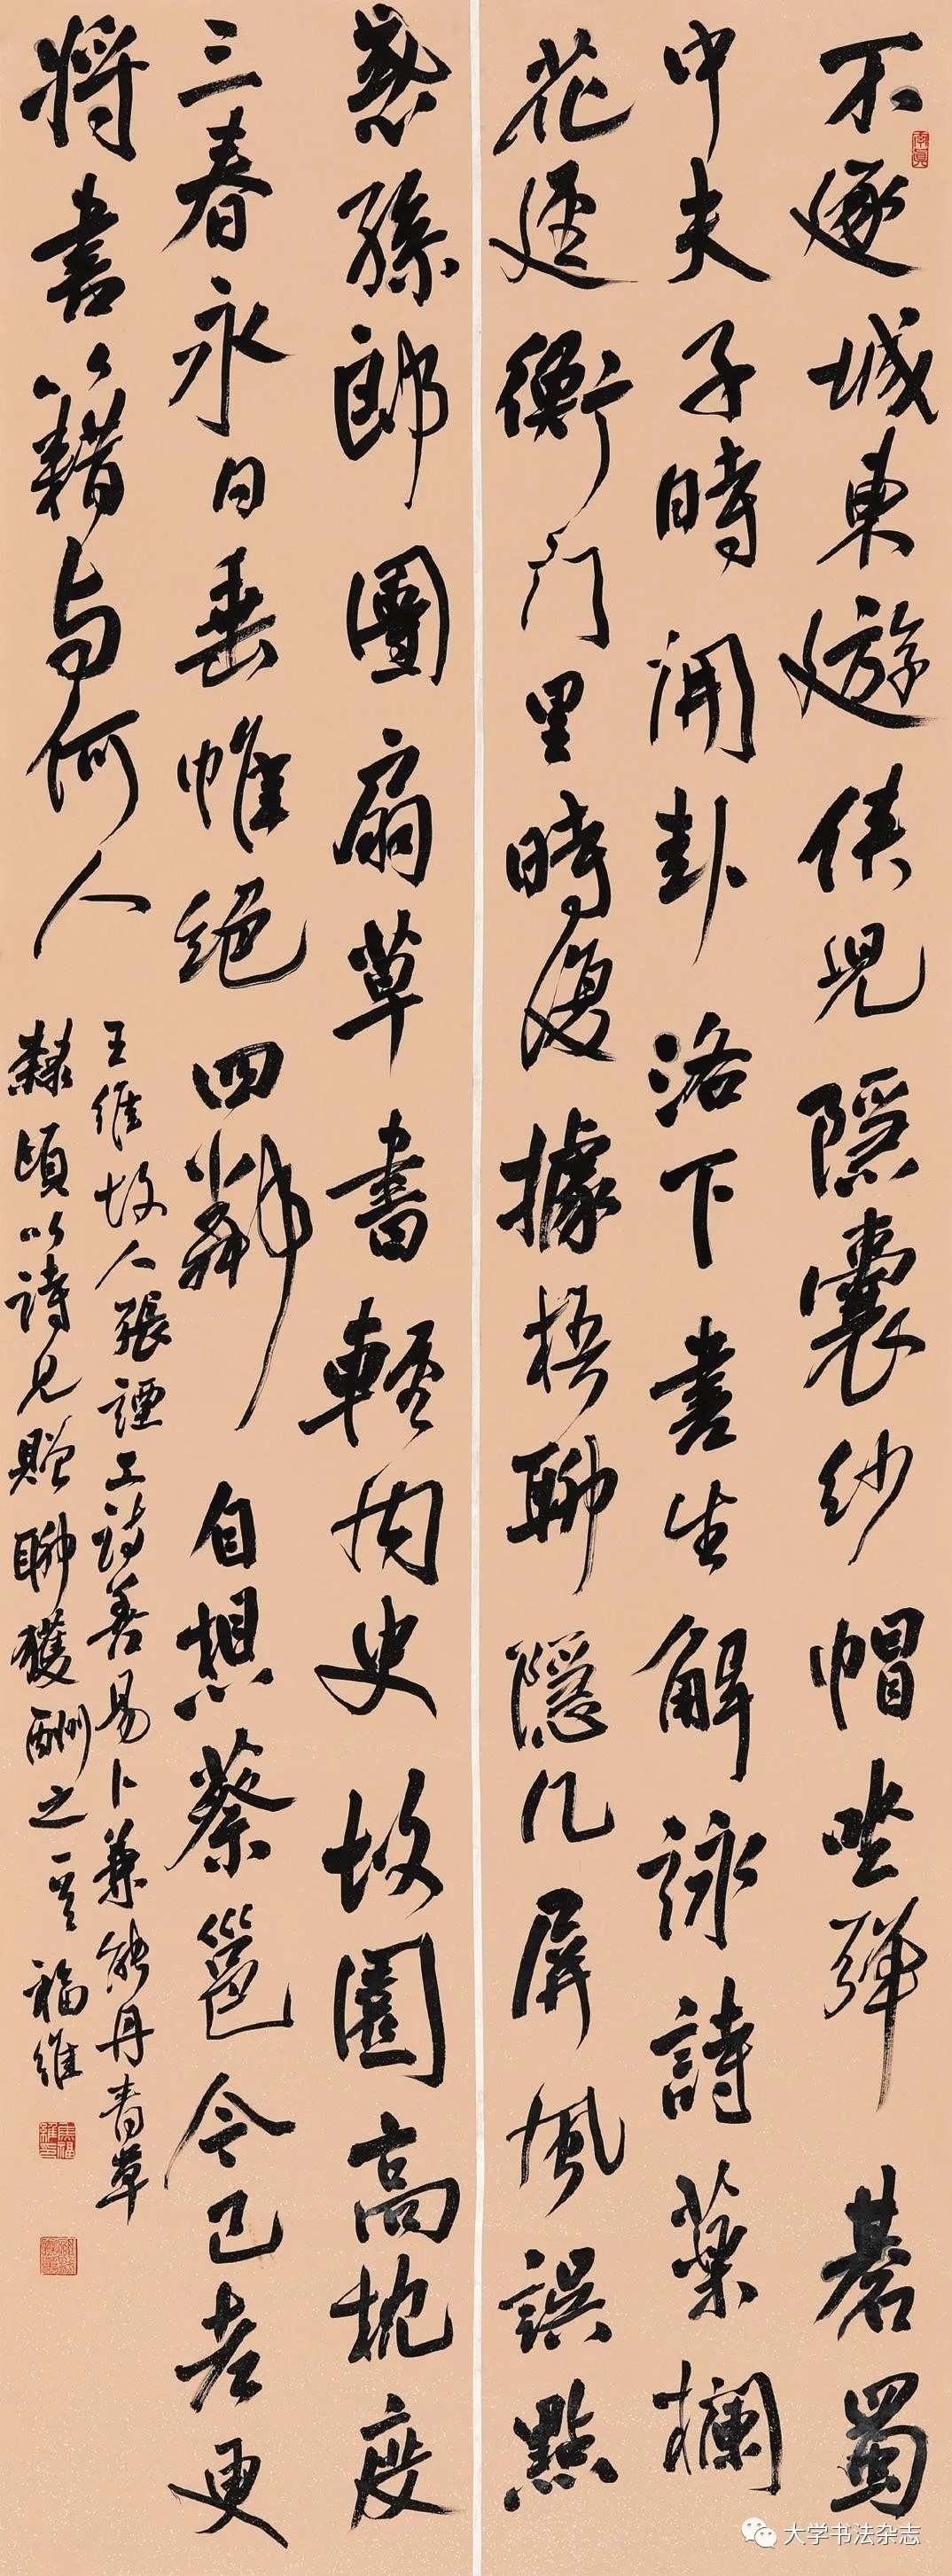 不逐城東遊俠兒隱囊紗帽坐彈碁蜀
中夫子時開卦洛下書生解詠詩藥欄
花逕衡门里時復據梧聊隱几屏風誤點
惑孫郎團扇草書輕內史故園高枕度
三春永日垂帷絕四鄰自想蔡邕今已老更
將書籍与何人
王維故人張諲工詩善易卜兼能丹青草
隸頃以詩見贈聊獲酬之 福維
大学书法杂志